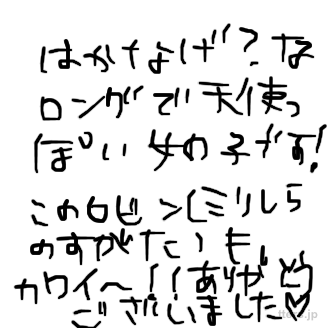 はかなげ？な
ロングで天使っ
ぽい女の子です！
このロビン(ミリしら
のすがた)も
カワイ〜！！ありがとう
ございました♡